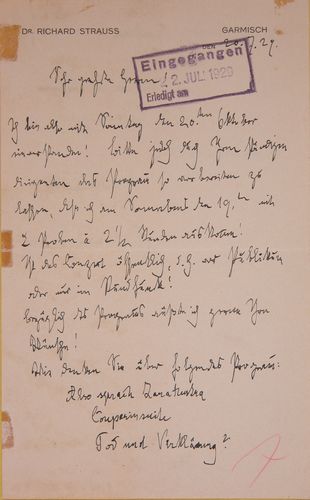 DR. RICHARD STRAUSS GARMISCH
DEN 20.7.29.
Eingegangen
2. JULI 1929
Erledigt am
Sehr geehrte Herren!
Ich bin also mit Sonntag den 20.ten Oktober
einverstanden! Bitte jedoch durch Ihren ständigen
Dirigenten das Programm so vorbereiten zu
lassen, daß ich am Sonnabend den 19.ten mit
2 Proben à 2 1/2 Stunden auskomme!
Ist das Concert öffentlich, d.h. vor Publikum
oder nur im Rundfunk?
bezüglich des Programms äußere ich gerne Ihre
Wünsche!
Wie denken Sie über folgendes Programm:
Also sprach Zarathustra
Couperinsuite
Tod und Verklärung?